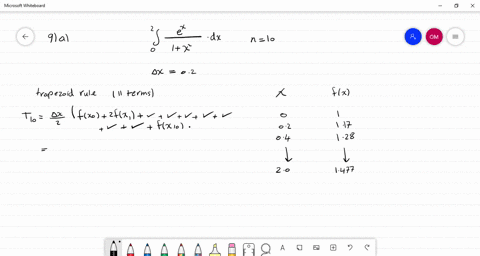 Microsoft Whiteboard
9)a)
∫₀² eˣ / 1+x² · dx n=10
Δx = 0.2
trapezoid rule (11 terms)
T₁₀ = Δx/2 ( f(x0) + 2f(x₁) + ✓ + ✓ + ✓ + ✓ + ✓
+ ✓ + ✓ + f(x10) .
=
x f(x)
0 1
0.2 1.17
0.4 1.28
↓ ↓
2.0 1.477
OM